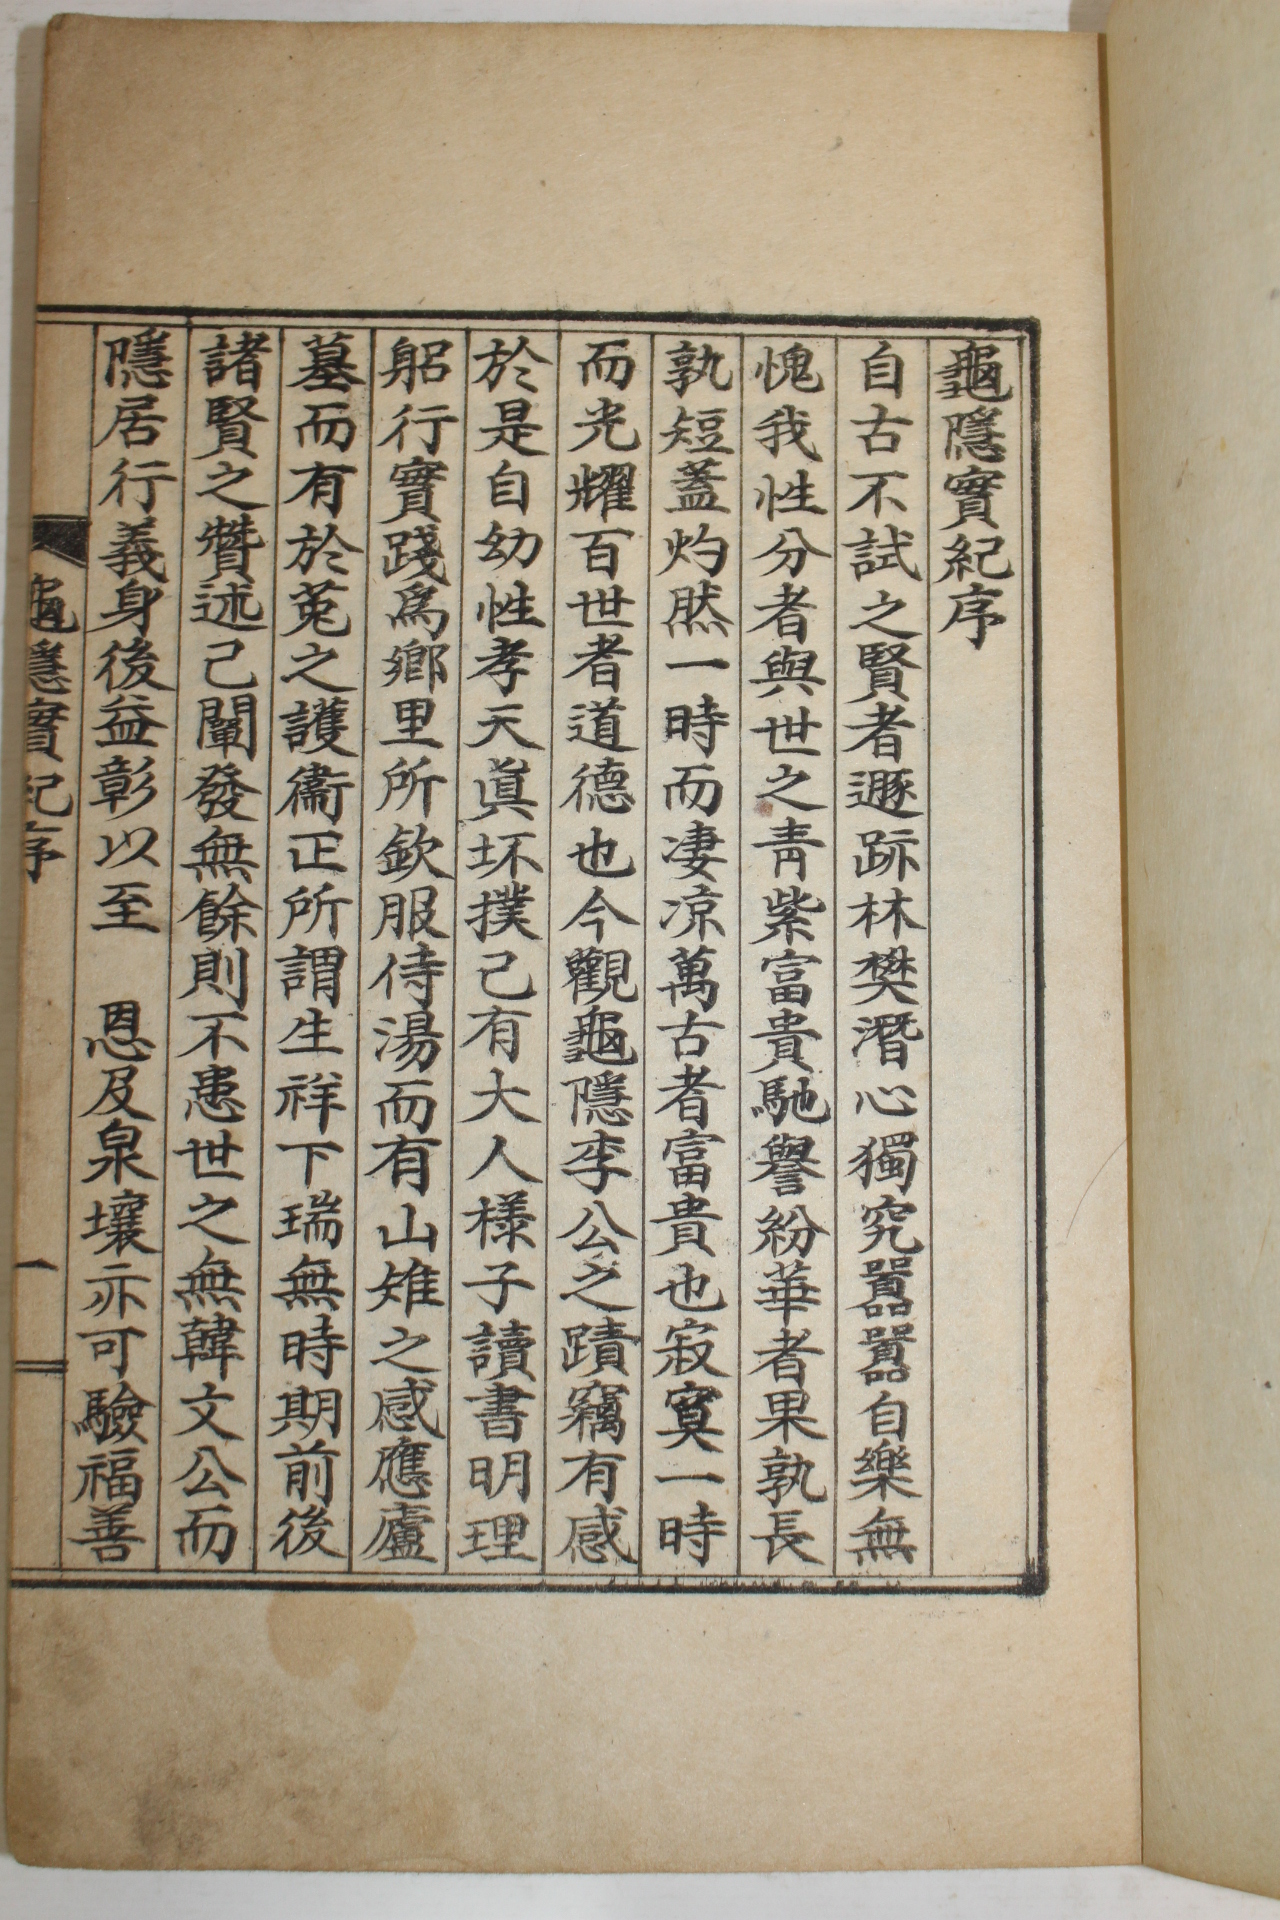 龜隱實紀序
自古不試之賢者遯跡林樊潛心獨究囂囂自樂無
愧我性分者與世之靑紫富貴馳譽紛華者果孰長
孰短蓋灼然一時而凄凉萬古者富貴也寂寞一時
而光耀百世者道德也今觀龜隱李公之蹟竊有感
於是自幼性孝天眞坏撲己有大人樣子讀書明理
躬行實踐爲鄕里所欽服侍湯而有山雉之感應廬
墓而有於菟之護衞正所謂生祥下瑞無時期前後
諸賢之贊述己闡發無餘則不患世之無韓文公而
隱居行義身後益彰以至　恩及泉壤亦可驗福善
龜隱實紀序
一